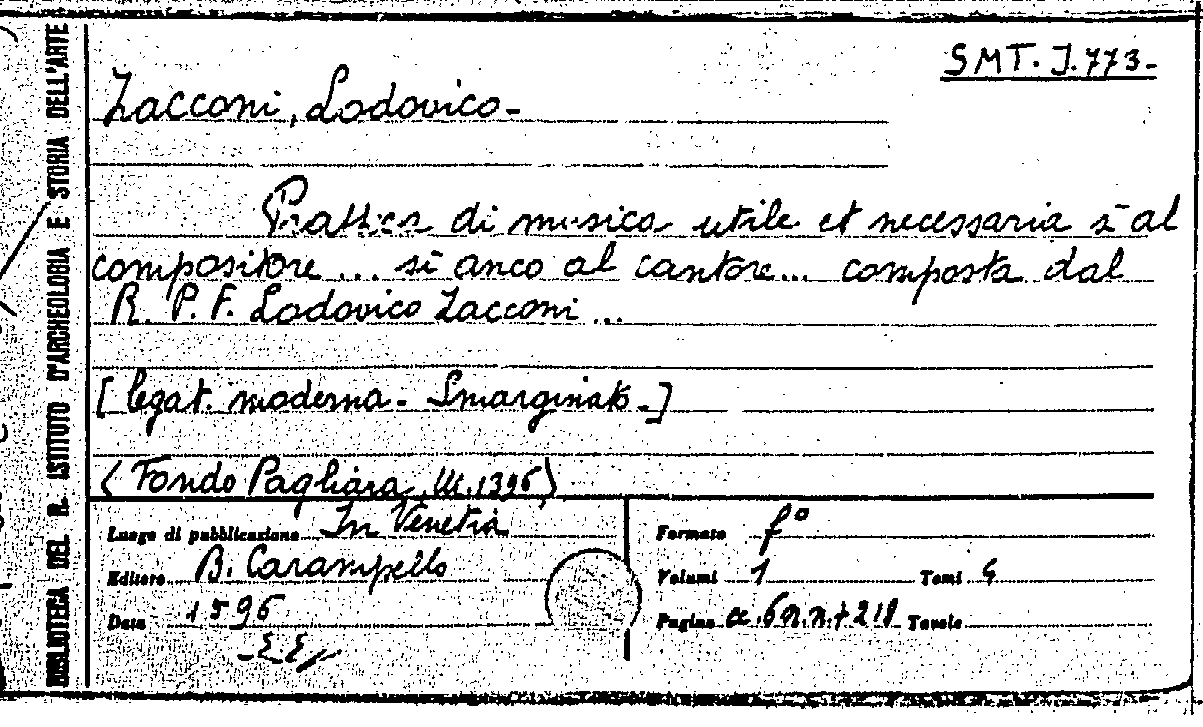 BIBLIOTECA DEL R. ISTITUTO D'ARCHEOLOGIA E STORIA DELL'ARTE
SMT. J.773-
Zacconi, Lodovico-
Prattica di musica utile et necessaria sì al
compositore ... sì anco al cantore... composta dal
R. P. F. Lodovico Zacconi ...
[legat. moderna - Smarginato-]
(Fondo Pagliara, III.1396)
Luogo di pubblicazione In Venetia
Editore B. Carampello
Data 1596
Formato f°
Volumi 1 Tomi
Pagine cc. 6 n.n. + 218 Tavole